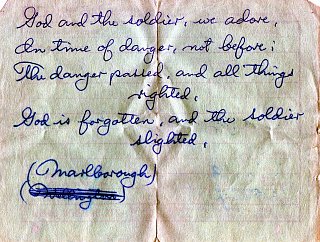 God and the soldier, we adore,
In time of danger, not before;
The danger passed, and all things
righted,
God is forgotten, and the soldier
slighted.
(Marlborough)